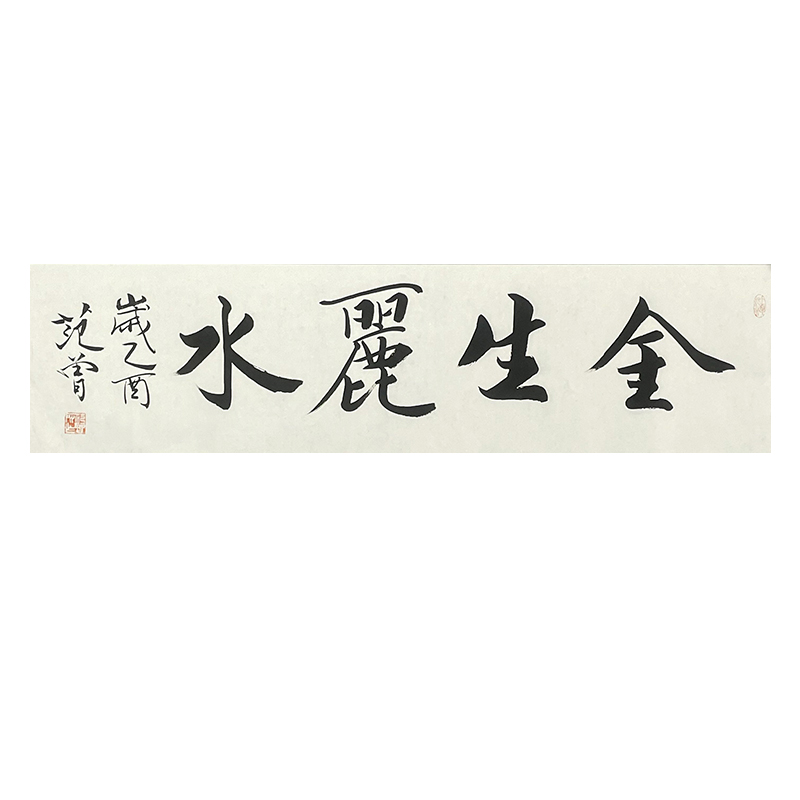 金生麗水
歲乙酉
范曾